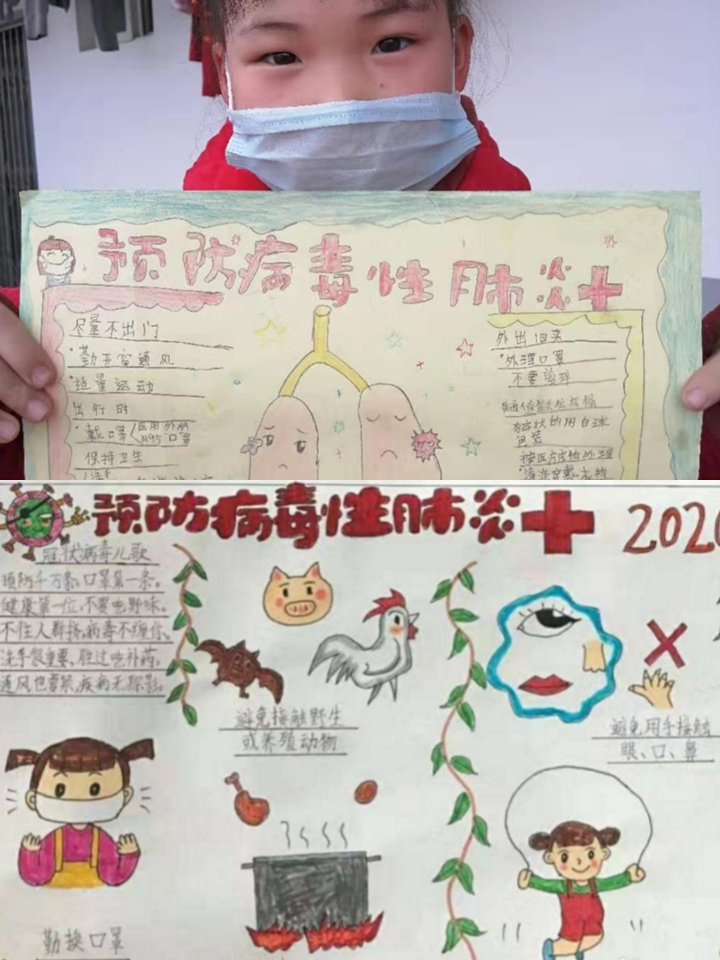 预防病毒性肺炎
尽量不出门
勤开窗通风
适量运动
出行时
戴口罩
N95口罩
保持卫生
外出回来
处理口罩
不要乱扔
预防病毒性肺炎 2020
冠状病毒儿歌
预防千万条,口罩第一条。
健康第一位,不要吃野味。
不往人群挤,病毒不缠你。
洗手很重要,胜过吃补药,
通风也要紧,疾病无踪影。
避免接触野生
或养殖动物
避免用手接触
眼、口、鼻
勤换口罩